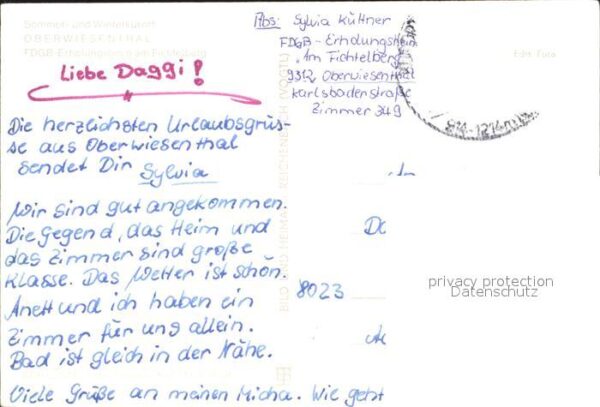 Sommer- und Winterkurort
OBERWIESENTHAL
FDGB-Erholungsheim am Fichtelberg
Abs: Sylvia Küttner
FDGB-Erholungsheim
"Am Fichtelberg"
9312 Oberwiesenthal
Karlsbaderstraße
Zimmer 349
Liebe Daggi!
Die herzlichsten Urlaubsgrüs-
se aus Oberwiesenthal
sendet Dir Sylvia
Wir sind gut angekommen.
Die Gegend, das Heim und
das Zimmer sind große
Klasse. Das Wetter ist schön.
Anett und ich haben ein
Zimmer für uns allein.
Bad ist gleich in der Nähe.
Viele Grüße an meinen Micha. Wie geht
BILD UND HEIMAT REICHENBACH (VOGTL)
Echt Foto
8023
privacy protection
Datenschutz